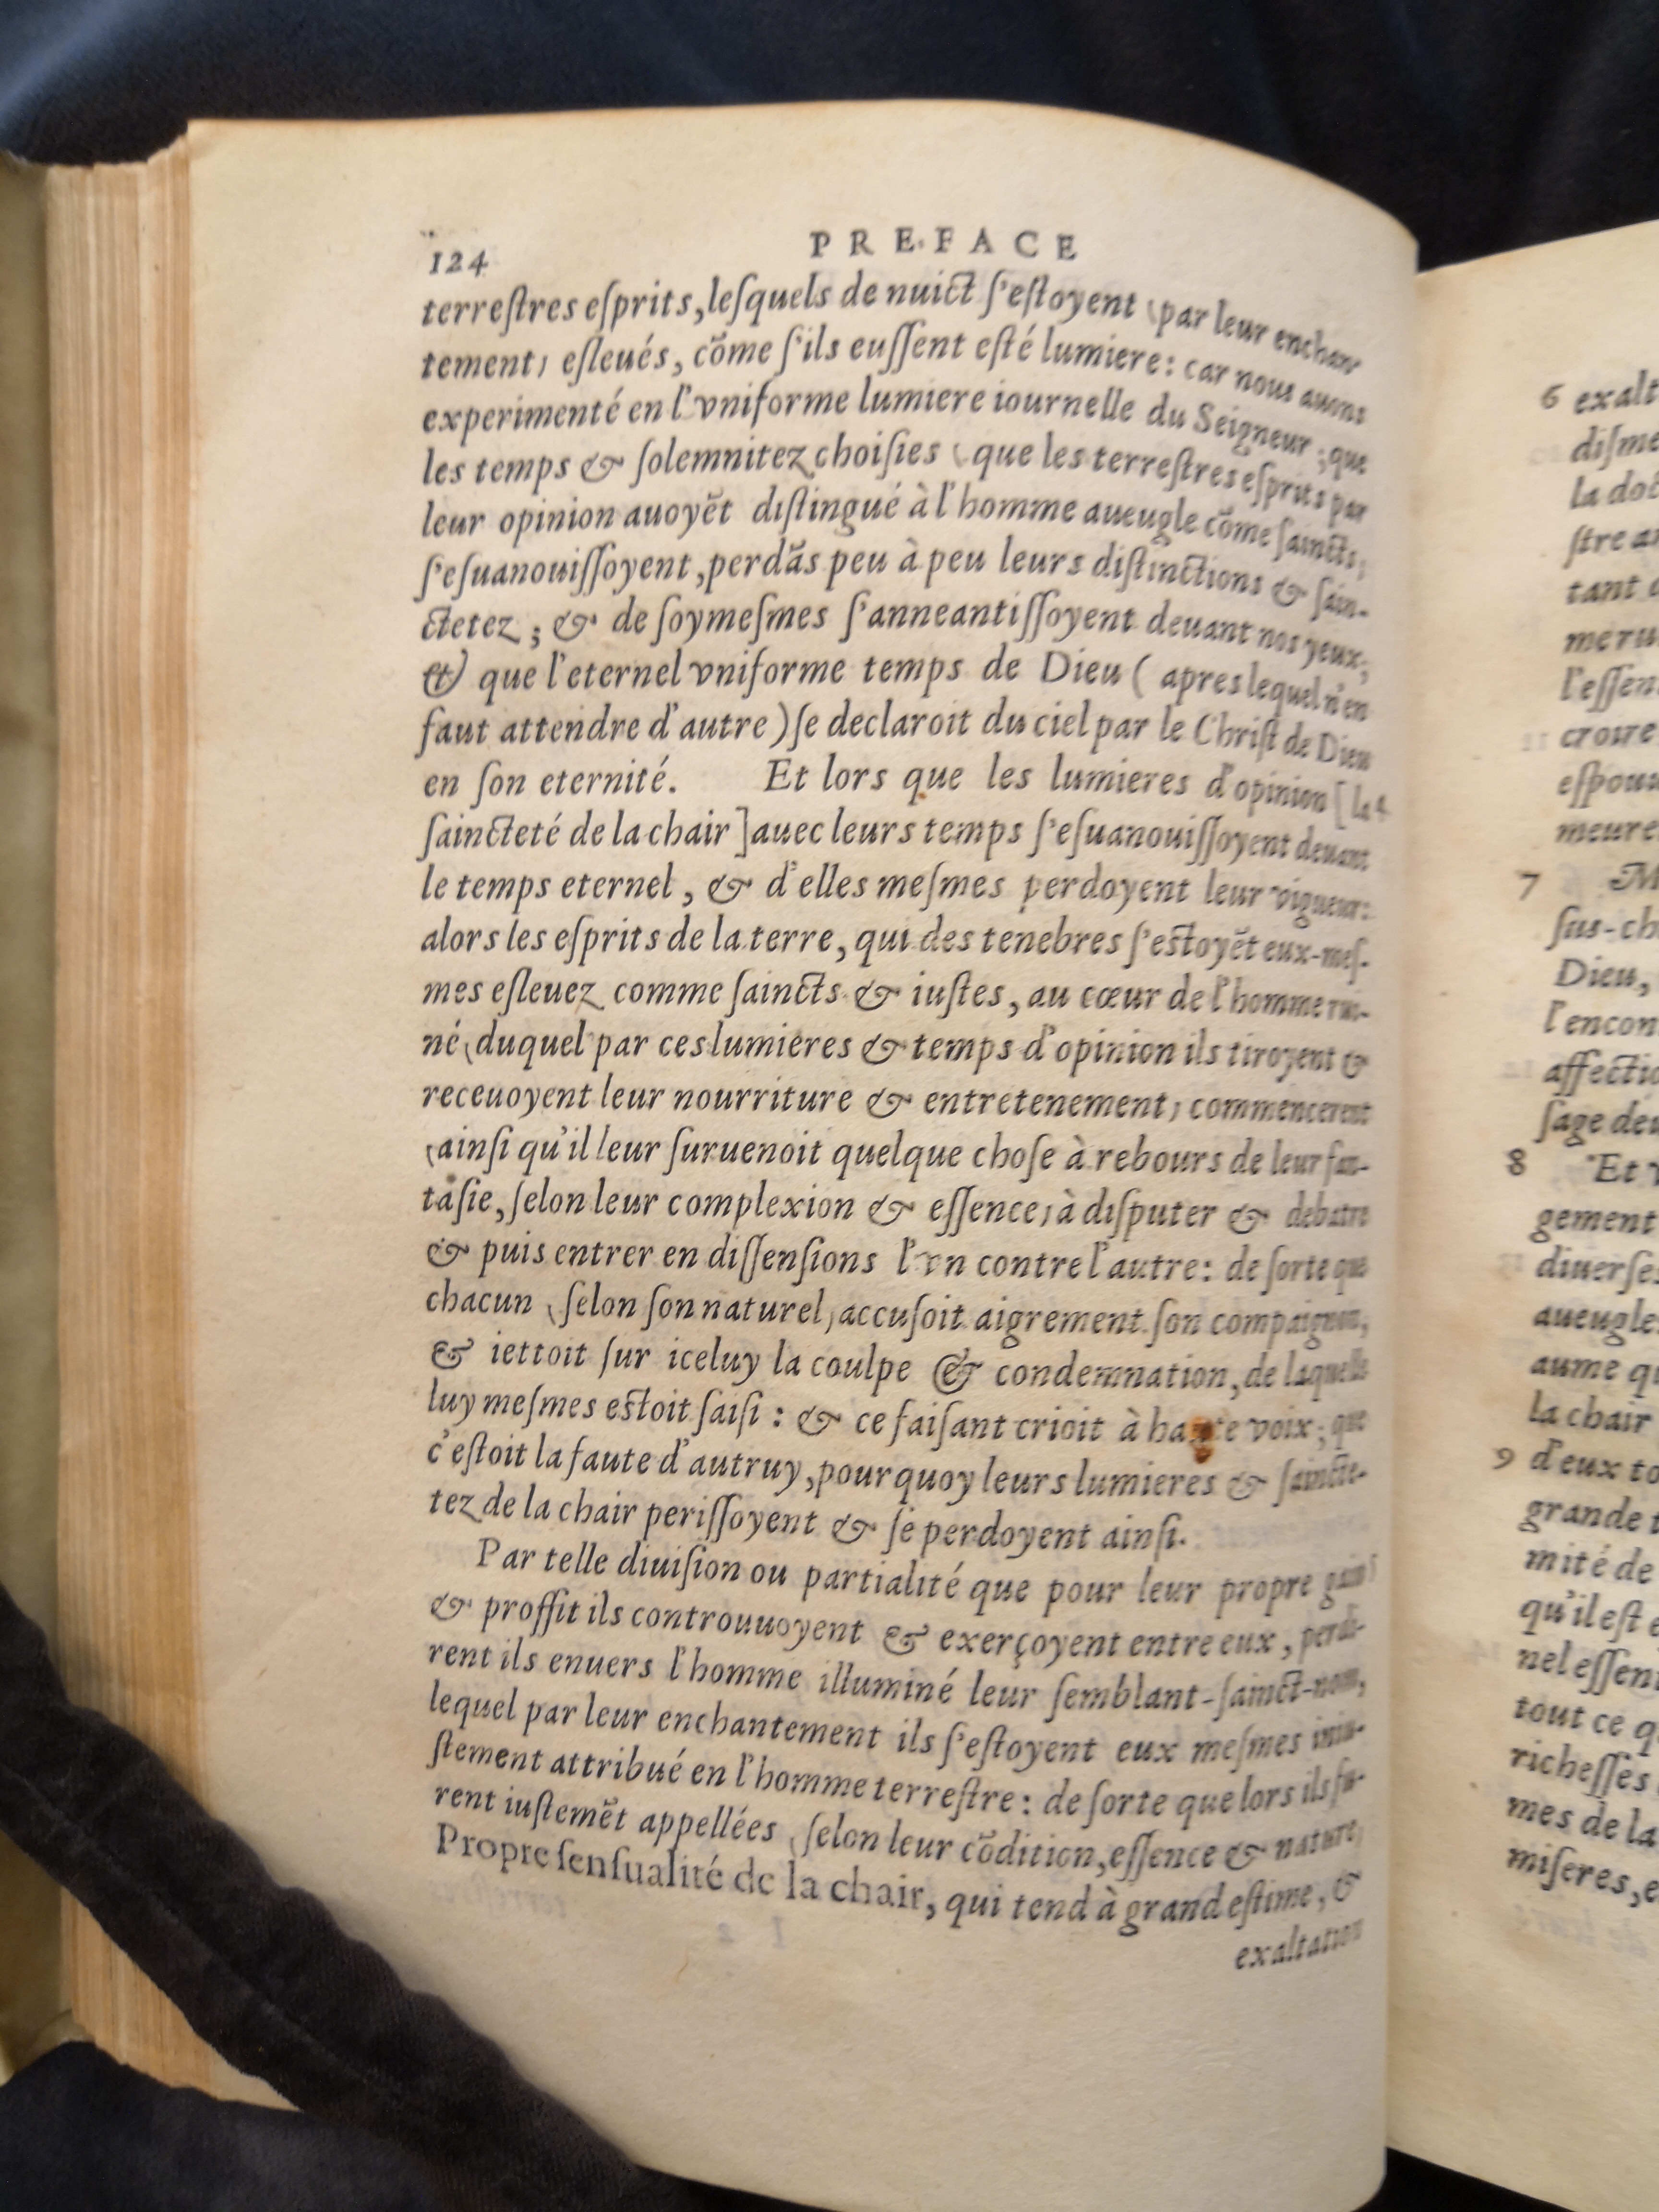 124
PREFACE
terreſtres eſprits, leſquels de nuict ſ'eſtoyent (par leur enchan-
tement) eſleués, cõme ſ'ils euſſent eſté lumiere: car nous auons
experimenté en l'vniforme lumiere iournelle du Seigneur; que
les temps & ſolemnitez choiſies (que les terreſtres eſprits par
leur opinion auoyẽt diſtingué à l'homme aueugle cõme ſaincts,
ſ'eſuanouiſſoyent, perdãs peu à peu leurs diſtinctions & ſain-
ctetez; & de ſoymeſmes ſ'anneantiſſoyent deuant nos yeux;
& que l'eternel vniforme temps de Dieu ( apres lequel n'en
faut attendre d'autre ) ſe declaroit du ciel par le Chriſt de Dieu
en ſon eternité. Et lors que les lumieres d'opinion [ la
ſaincteté de la chair ] auec leurs temps ſ'eſuanouiſſoyent deuant
le temps eternel, & d'elles meſmes perdoyent leur vigueur:
alors les eſprits de la terre, qui des tenebres ſ'eſtoyẽt eux-meſ-
mes eſleuez comme ſaincts & iuſtes, au cœur de l'homme rui-
né (duquel par ces lumieres & temps d'opinion ils tiroyent &
receuoyent leur nourriture & entretenement) commencerent
(ainſi qu'il leur ſuruenoit quelque choſe à rebours de leur fan-
taſie, ſelon leur complexion & eſſence) à diſputer & debatre
& puis entrer en diſſenſions l'vn contre l'autre: de ſorte que
chacun (ſelon ſon naturel) accuſoit aigrement ſon compaignon,
& iettoit ſur iceluy la coulpe & condemnation, de laquelle
luy meſmes eſtoit ſaiſi: & ce faiſant crioit à haute voix; que
c'eſtoit la faute d'autruy, pourquoy leurs lumieres & ſaincte-
tez de la chair periſſoyent & ſe perdoyent ainſi.
Par telle diuiſion ou partialité que pour leur propre gain
& proffit ils controuuoyent & exerçoyent entre eux, perdi-
rent ils enuers l'homme illuminé leur ſemblant-ſainct-nom,
lequel par leur enchantement ils ſ'eſtoyent eux meſmes iniu-
ſtement attribué en l'homme terreſtre: de ſorte que lors ils fu-
rent iuſtemẽt appellées (ſelon leur cõdition, eſſence & nature)
Propre ſenſualité de la chair, qui tend à grand eſtime, &
exaltation
6 exalt
diſme
la doc
ſtre a
tant
meru
l'eſſen
croire
eſpou
meure
7 M
ſus-ch
Dieu,
l'encon
affectio
ſage deu
8 Et v
gement
diuerſes
aueugle
aume qu
la chair
9 d'eux to
grande
mité de
qu'il eſt
nel eſſen
tout ce q
richeſſes
mes de la
miſeres, e